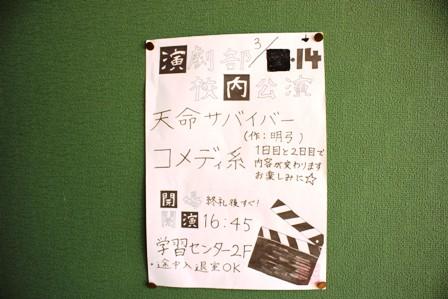 演劇部 3/ ・14
校内公演
天命サバイバー
(作:明弓)
コメディ系
1日目と2日目で
内容が変わります
お楽しみに☆
開場 終礼後すぐ!
開演 16:45
学習センター2F
・途中入退室OK